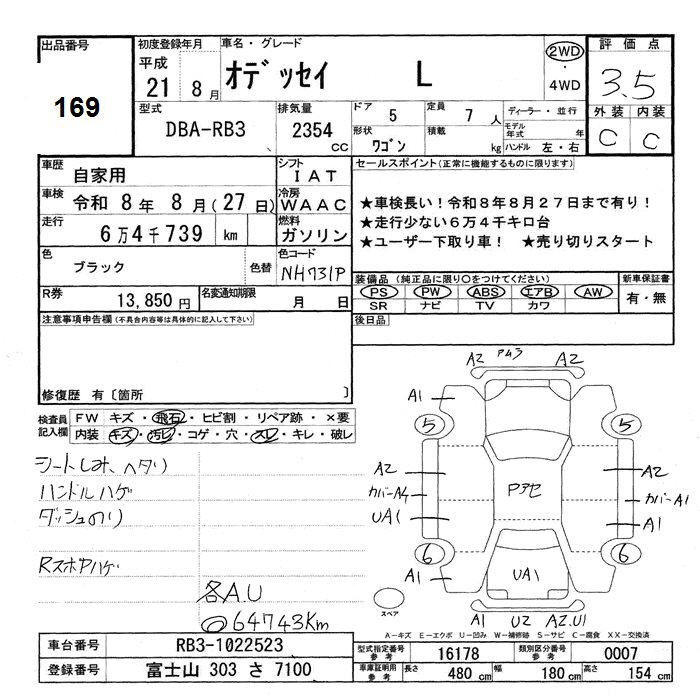 出品番号
169
初度登録年月
平成
21年 8月
車名・グレード
オデッセイ L
2WD
・
4WD
評価点
3.5
外装 内装
C C
型式
DBA-RB3
排気量
2354
CC
ドア 5
定員 7 人
形状 ワゴン
積載 kg
ディーラー・並行
モデル年式 年
ハンドル 左・右
車歴 自家用
シフト IAT
車検 令和 8年 8月(27日)
冷房 WAAC
走行 6万4千739 km
燃料 ガソリン
色 ブラック 色替
色コード NH731P
R券 13,850円
名変通知期限 月 日
セールスポイント(正常に機能するものに限ります)
★車検長い!令和8年8月27日まで有り!
★走行少ない6万4千キロ台
★ユーザー下取り車! ★売り切りスタート
装備品(純正品に限り○をつけてください)
PS PW ABS エアB AW
SR ナビ TV カワ
新車保証書
有・無
後日品
注意事項申告欄(不具合内容等は具体的に記入して下さい)
修復歴 有〔箇所 〕
検査員記入欄
FW キズ・飛石・ヒビ割・リペア跡・×要
内装 キズ・汚レ・コゲ・穴・スレ・キレ・破レ
シートしみ、ヘタリ
ハンドルハゲ
ダッシュのり
RスポPハゲ
各A.U
◎64743Km
A2 PM3 A2
A1
5 5
A2 A2
カバーA4 カバーA1
UA1 A1
Pアセ
6 6
A1 UA1 A1
スペア
A1 U2 A2.U1
A-キズ E-エクボ U-凹み W-補修跡 S-サビ C-腐食 XX-交換済
車台番号 RB3-1022523
登録番号 富士山 303 さ 7100
型式指定番号 参考 16178
類別区分番号 参考 0007
車庫証明用 参考 長さ 480 cm 幅 180 cm 高さ 154 cm